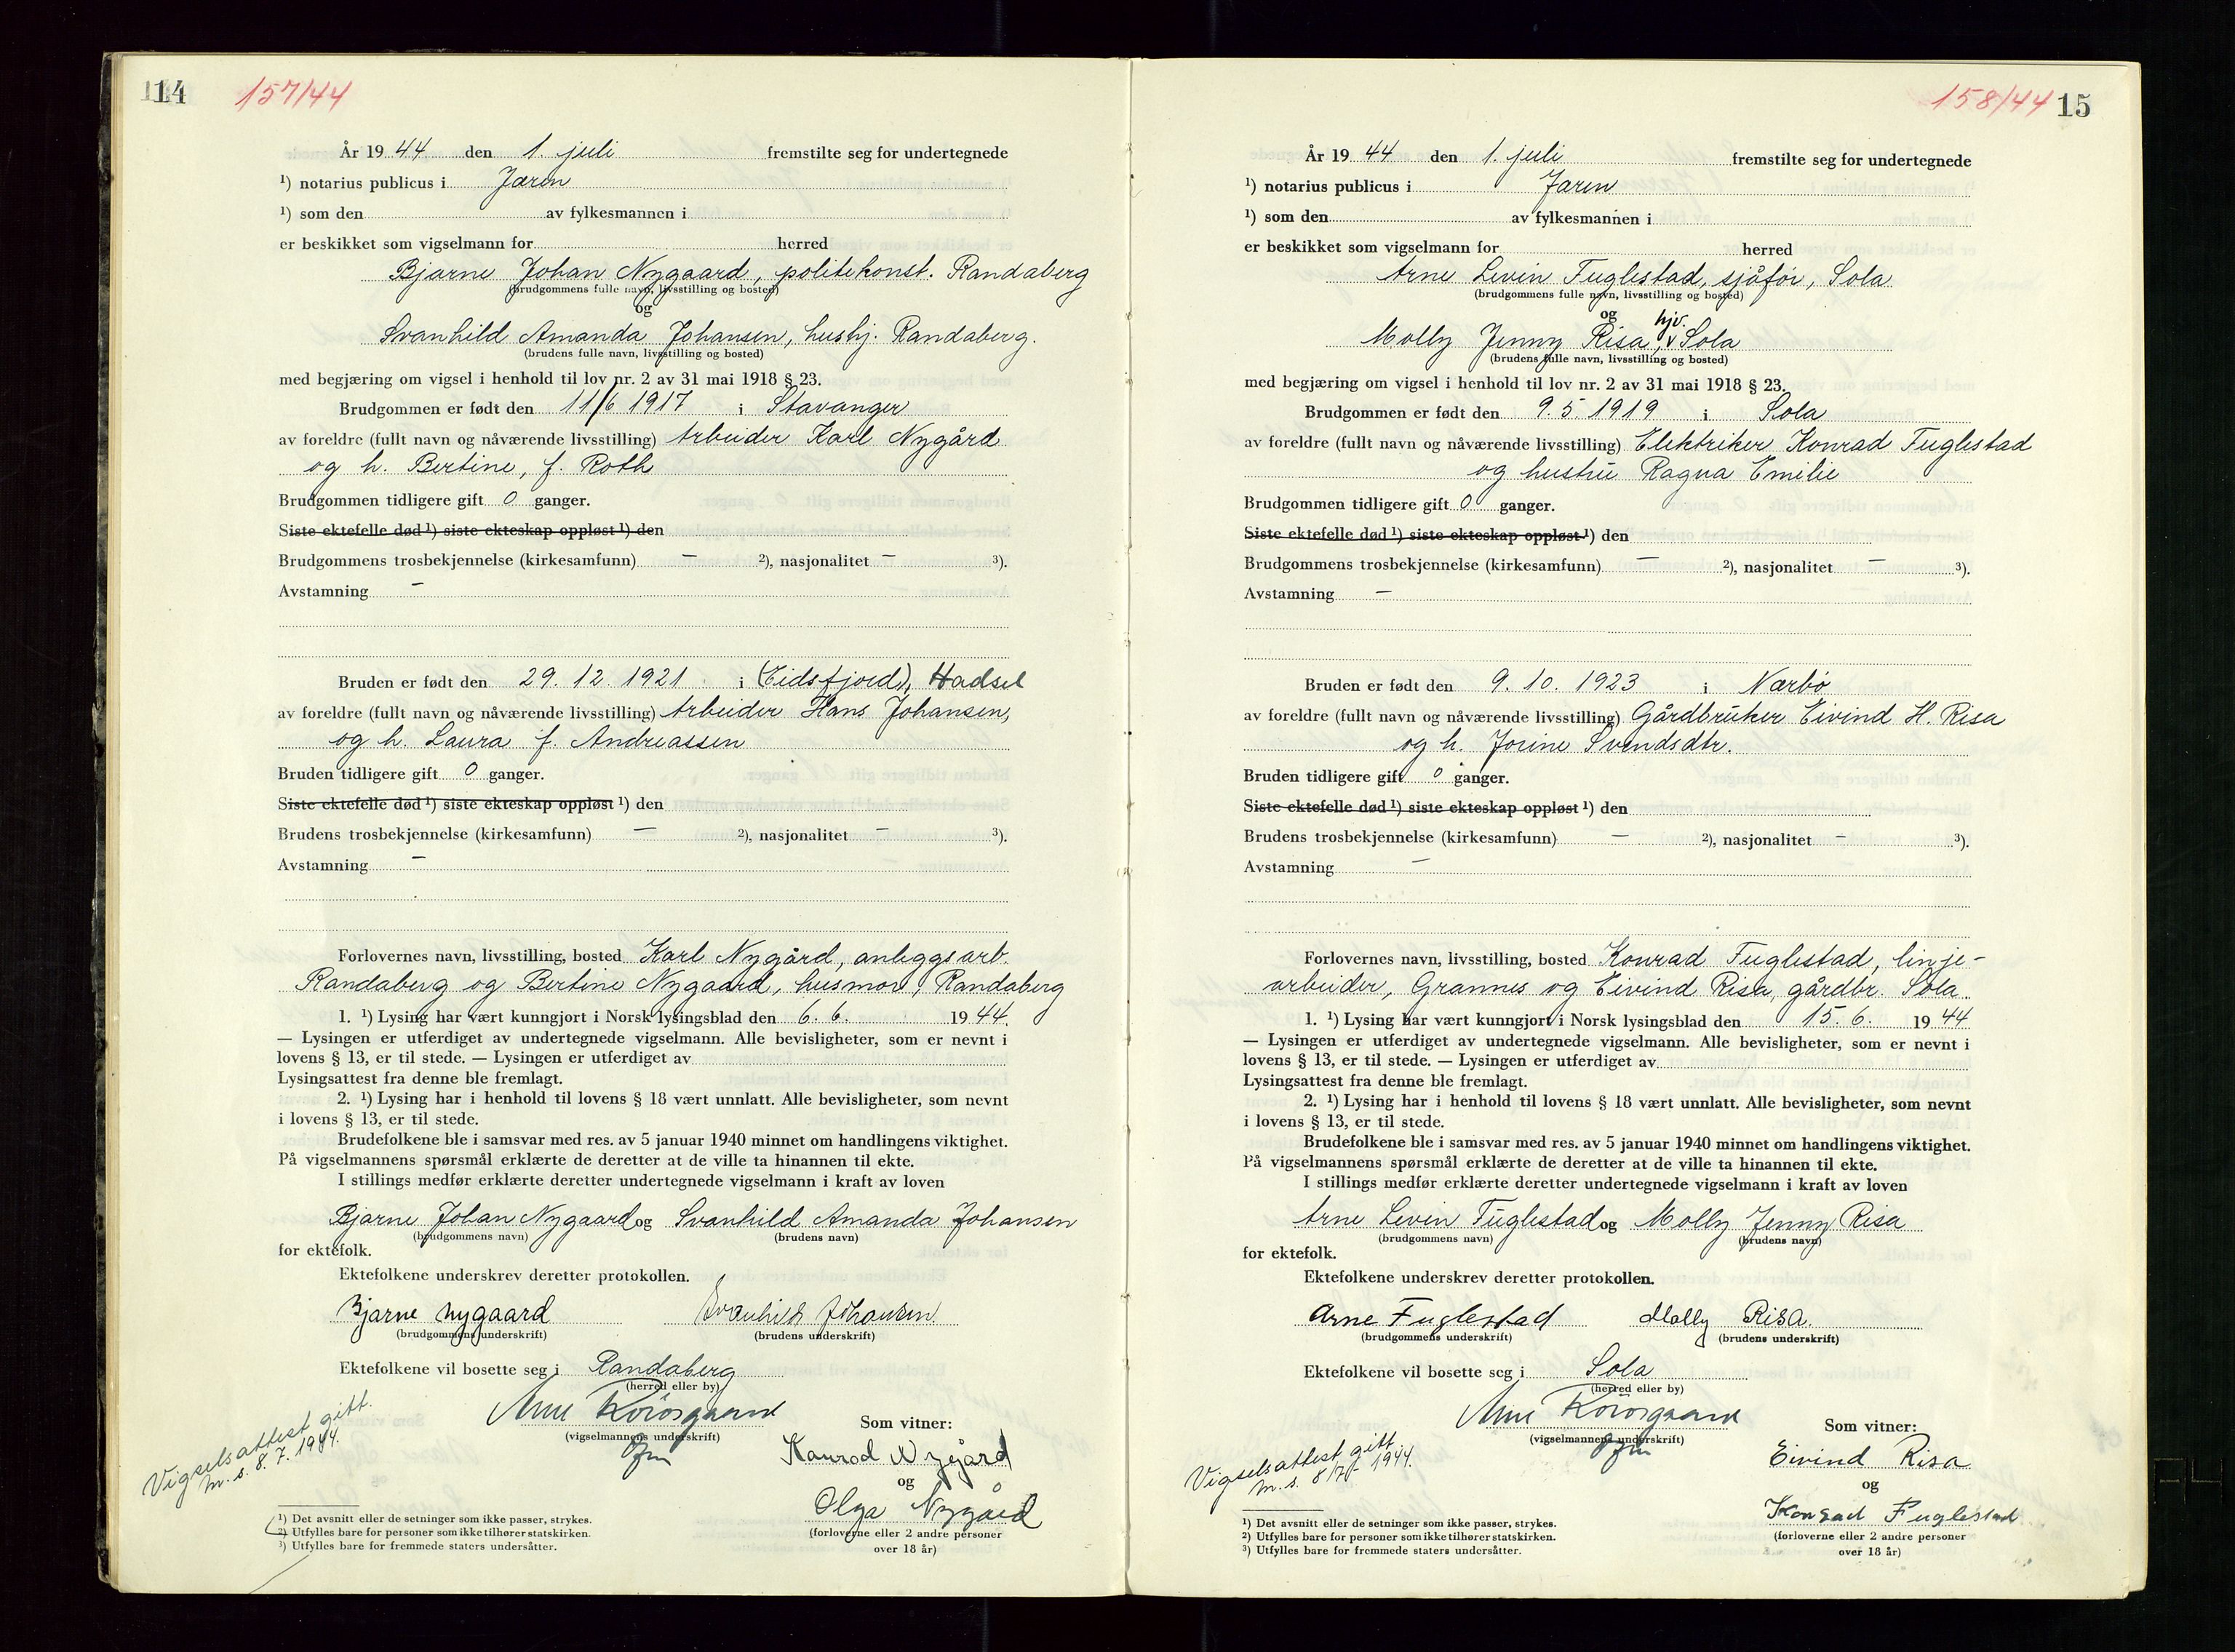 14 157/44
År 1944 den 1. juli fremstilte seg for undertegnede
¹) notarius publicus i Jæren
¹) som den av fylkesmannen i
er beskikket som vigselmann for herred
Bjarne Johan Nygaard, politikonst. Randaberg
(brudgommens fulle navn, livsstilling og bosted)
og
Svanhild Amanda Johansen, hushj. Randaberg.
(brudens fulle navn, livsstilling og bosted)
med begjæring om vigsel i henhold til lov nr. 2 av 31 mai 1918 § 23.
Brudgommen er født den 11/6 1917 i Stavanger
av foreldre (fullt navn og nåværende livsstilling) Arbeider Karl Nygård
og h. Bertine, f. Roth
Brudgommen tidligere gift 0 ganger.
Siste ektefelle død ¹) siste ekteskap oppløst ¹) den
Brudgommens trosbekjennelse (kirkesamfunn) — ²), nasjonalitet — ³).
Avstamning —
Bruden er født den 29. 12. 1921 i (Eidsfjord), Hadsel
av foreldre (fullt navn og nåværende livsstilling) Arbeider Hans Johansen,
og h. Laura f. Andreassen
Bruden tidligere gift 0 ganger.
Siste ektefelle død ¹) siste ekteskap oppløst ¹) den
Brudens trosbekjennelse (kirkesamfunn) — ²), nasjonalitet — ³).
Avstamning —
Forlovernes navn, livsstilling, bosted Karl Nygård, anleggsarb.
Randaberg og Bertine Nygaard, husmor, Randaberg
1. ¹) Lysing har vært kunngjort i Norsk lysingsblad den 6. 6. 1944.
— Lysingen er utferdiget av undertegnede vigselmann. Alle bevisligheter, som er nevnt i
lovens § 13, er til stede. — Lysingen er utferdiget av
Lysingsattest fra denne ble fremlagt.
2. ¹) Lysing har i henhold til lovens § 18 vært unnlatt. Alle bevisligheter, som nevnt
i lovens § 13, er til stede.
Brudefolkene ble i samsvar med res. av 5 januar 1940 minnet om handlingens viktighet.
På vigselmannens spørsmål erklærte de deretter at de ville ta hinannen til ekte.
I stillings medfør erklærte deretter undertegnede vigselmann i kraft av loven
Bjarne Johan Nygaard og Svanhild Amanda Johansen
(brudgommens navn) (brudens navn)
for ektefolk.
Ektefolkene underskrev deretter protokollen.
Bjarne Nygaard Svanhild Johansen
(brudgommens underskrift) (brudens underskrift)
Ektefolkene vil bosette seg i Randaberg
(herred eller by)
(vigselmannens underskrift)
Som vitner:
Konrad Nygård
og
Olga Nygård
(forloverne eller 2 andre personer
over 18 år)
Vigselsattest gitt.
m. s. 8. 7. 1944.
¹) Det avsnitt eller de setninger som ikke passer, strykes.
²) Utfylles bare for personer som ikke tilhører statskirken.
³) Utfylles bare for fremmede staters undersåtter.
158/44 15
År 1944 den 1. juli fremstilte seg for undertegnede
¹) notarius publicus i Jæren
¹) som den av fylkesmannen i
er beskikket som vigselmann for herred
Arne Levin Fuglestad, sjåfør, Sola
(brudgommens fulle navn, livsstilling og bosted)
og
Molly Jenny Risa, hjv. Sola
(brudens fulle navn, livsstilling og bosted)
med begjæring om vigsel i henhold til lov nr. 2 av 31 mai 1918 § 23.
Brudgommen er født den 9. 5. 1919 i Sola
av foreldre (fullt navn og nåværende livsstilling) Elektriker Konrad Fuglestad
og hustru Ragna Emilie
Brudgommen tidligere gift 0 ganger.
Siste ektefelle død ¹) siste ekteskap oppløst ¹) den
Brudgommens trosbekjennelse (kirkesamfunn) — ²), nasjonalitet — ³).
Avstamning —
Bruden er født den 9. 10. 1923 i Nærbø
av foreldre (fullt navn og nåværende livsstilling) Gårdbruker Eivind H. Risa
og h. Jorine Svendsdtr.
Bruden tidligere gift 0 ganger.
Siste ektefelle død ¹) siste ekteskap oppløst ¹) den
Brudens trosbekjennelse (kirkesamfunn) — ²), nasjonalitet — ³).
Avstamning —
Forlovernes navn, livsstilling, bosted Konrad Fuglestad, linje-
arbeider, Grannes og Eivind Risa, gårdbr. Sola.
1. ¹) Lysing har vært kunngjort i Norsk lysingsblad den 15. 6. 1944
— Lysingen er utferdiget av undertegnede vigselmann. Alle bevisligheter, som er nevnt i
lovens § 13, er til stede. — Lysingen er utferdiget av
Lysingsattest fra denne ble fremlagt.
2. ¹) Lysing har i henhold til lovens § 18 vært unnlatt. Alle bevisligheter, som nevnt
i lovens § 13, er til stede.
Brudefolkene ble i samsvar med res. av 5 januar 1940 minnet om handlingens viktighet.
På vigselmannens spørsmål erklærte de deretter at de ville ta hinannen til ekte.
I stillings medfør erklærte deretter undertegnede vigselmann i kraft av loven
Arne Levin Fuglestad og Molly Jenny Risa
(brudgommens navn) (brudens navn)
for ektefolk.
Ektefolkene underskrev deretter protokollen.
Arne Fuglestad Molly Risa.
(brudgommens underskrift) (brudens underskrift)
Ektefolkene vil bosette seg i Sola
(herred eller by)
(vigselmannens underskrift)
Som vitner:
Eivind Risa
og
Konrad Fuglestad
(forloverne eller 2 andre personer
over 18 år)
Vigselsattest gitt
m. s. 8/7 - 1944.
¹) Det avsnitt eller de setninger som ikke passer, strykes.
²) Utfylles bare for personer som ikke tilhører statskirken.
³) Utfylles bare for fremmede staters undersåtter.